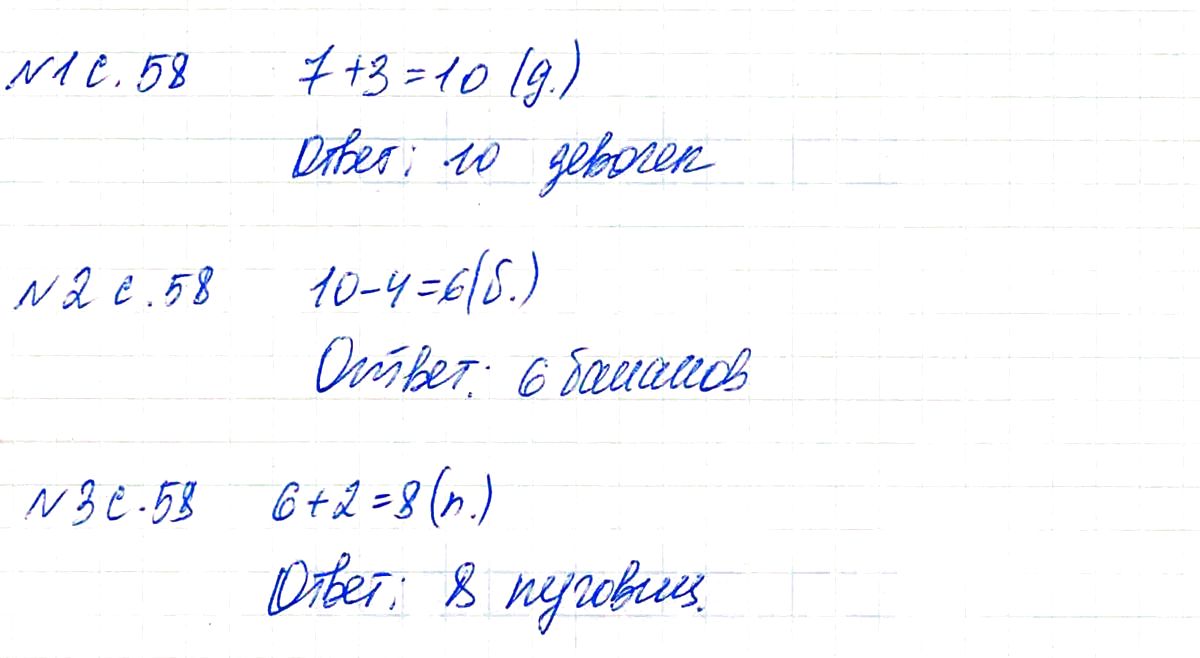 №1 с. 58 7+3=10 (д.)
Ответ: 10 девочек
№2 с. 58 10-4=6(б.)
Ответ: 6 бананов
№3 с. 58 6+2=8(п.)
Ответ: 8 пуговиц.